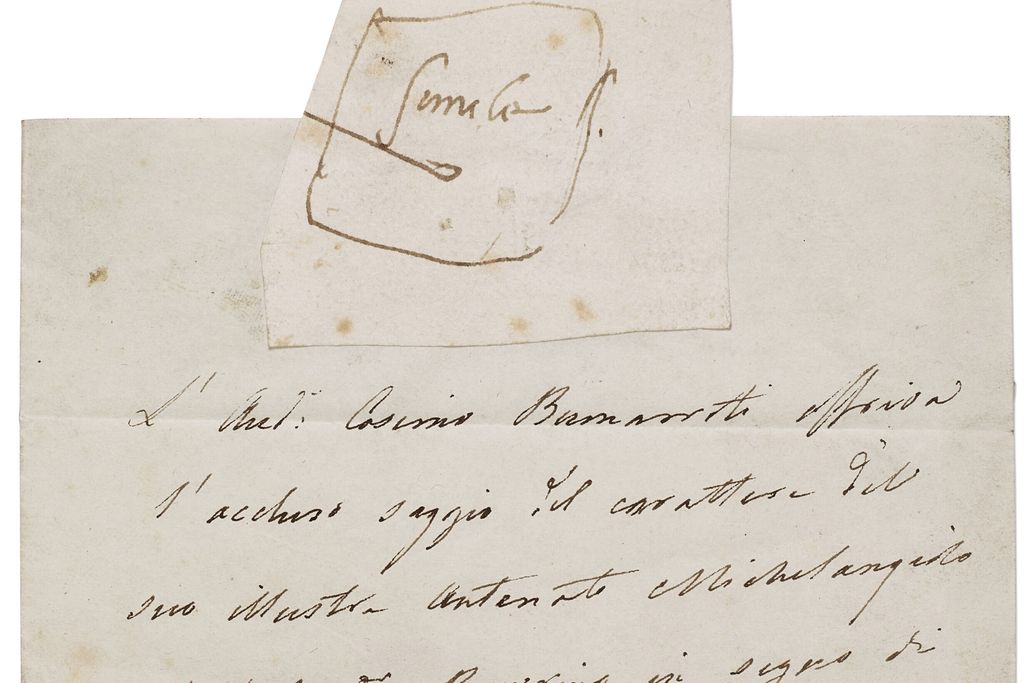 simile
L' Aud: Cosimo Buonarroti offriva
l' accluso saggio del carattere del
suo illustre Antenato Michelangiolo
in segno di